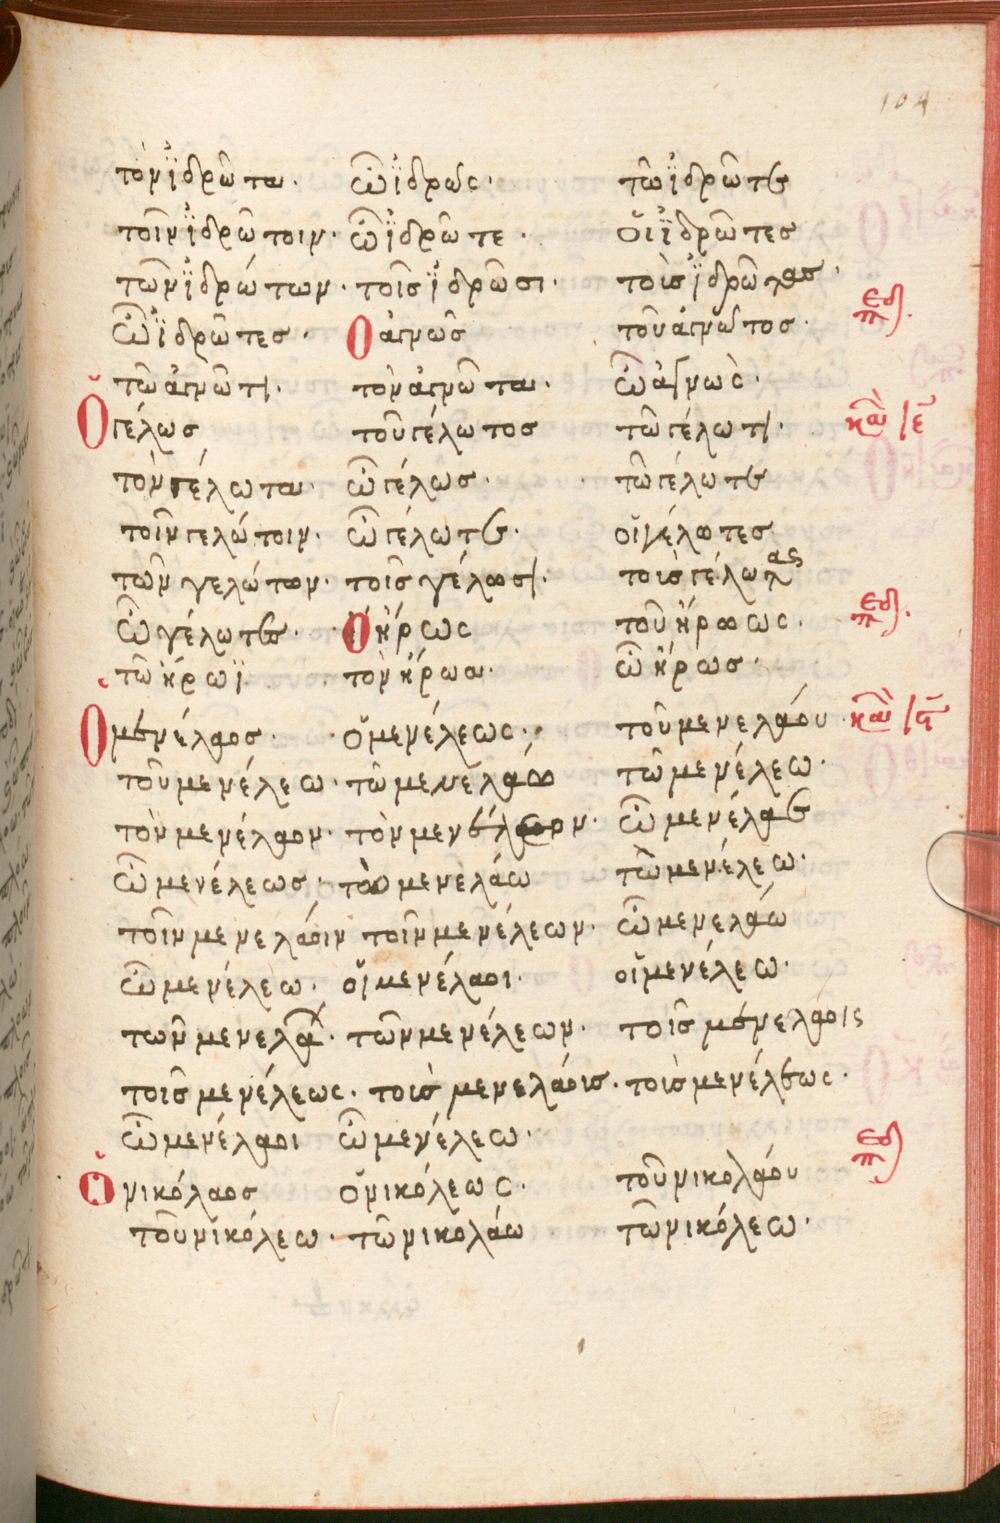 104
τὸν ἱδρῶτα · ὦ ἱδρώς · τὼ ἱδρῶτε
τοῖν ἱδρώτοιν · ὦ ἱδρῶτε · οἱ ἱδρῶτες
τῶν ἱδρώτων · τοῖς ἱδρῶσι · τοὺς ἱδρῶτας ·
ὦ ἱδρῶτες · Ὁ ἀγνὼς τοῦ ἀγνῶτος ·
τῶ ἀγνῶτι · τὸν ἀγνῶτα · ὦ ἀγνώς ·
Ὁ γέλως τοῦ γέλωτος τῶ γέλωτι · κανὼν ιε
τὸν γέλωτα · ὦ γέλως · τὼ γέλωτε
τοῖν γελώτοιν · ὦ γέλωτε · οἱ γέλωτες
τῶν γελώτων · τοῖς γέλωσι · τοὺς γέλωτας
ὦ γέλωτες · Ὁ ἥρως τοῦ ἥρωος ·
τῶ ἥρωϊ τὸν ἥρωα · ὦ ἥρως ·
Ὁ μενέλαος · ὁ μενέλεως · τοῦ μενελάου κανὼν ις
τοῦ μενέλεω · τῶ μενελάω τῶ μενέλεω ·
τὸν μενέλαον · τὸν μενέλεων · ὦ μενέλαε
ὦ μενέλεως · τὼ μενελάω τὼ μενέλεω ·
τοῖν μενελάοιν τοῖν μενέλεων · ὦ μενελάω
ὦ μενέλεω · οἱ μενέλαοι · οἱ μενέλεω ·
τῶν μενελάων · τῶν μενέλεων · τοῖς μενελάοις
τοῖς μενέλεως · τοὺς μενελάους · τοὺς μενέλεως ·
ὦ μενέλαοι ὦ μενέλεω ·
Ὁ νικόλαος ὁ νικόλεως · τοῦ νικολάου
τοῦ νικόλεω · τῶ νικολάω τῶ νικόλεω ·